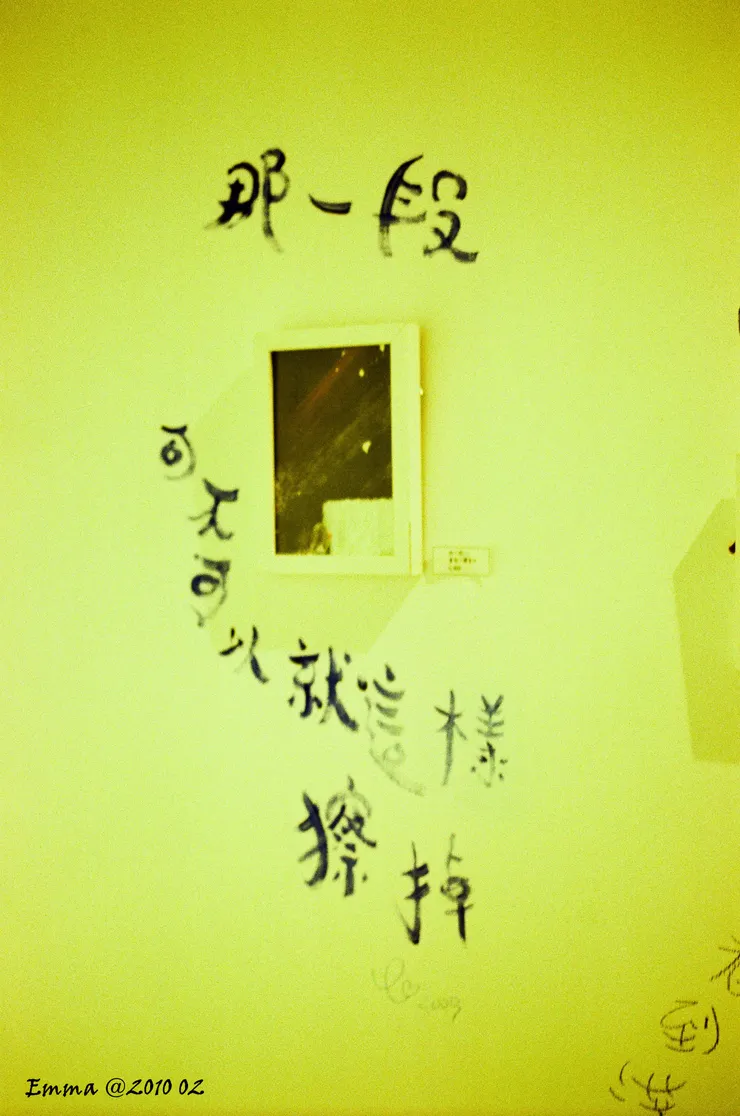 那一段
可不可以就這樣
擦掉
到
Emma @2010 02